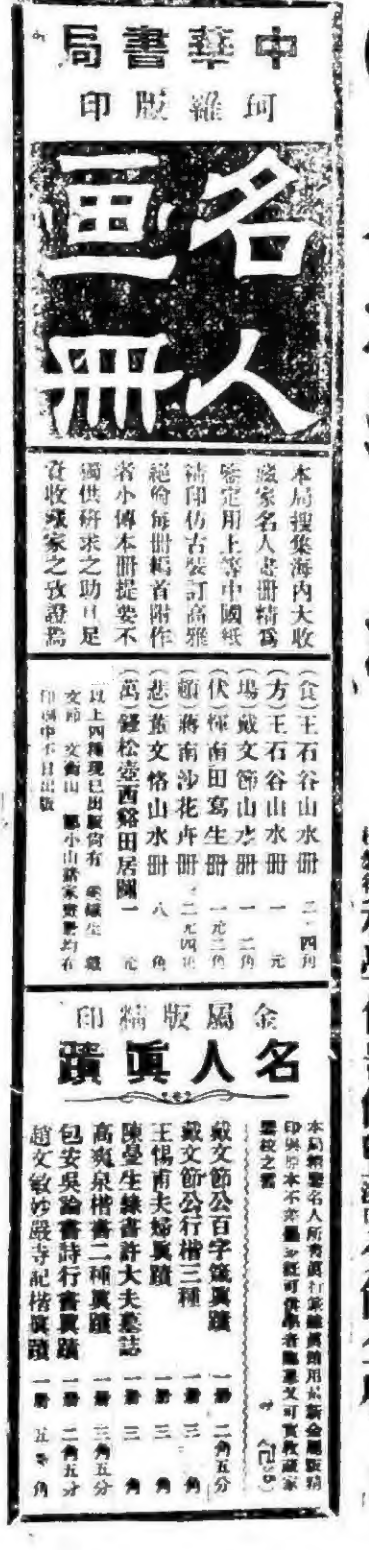 中華書局
珂羅版印
名人
画冊
本局搜集海內大收
藏家名人畫册精爲
鑒定用上等中國紙
精印仿古裝訂高雅
絕倫每册編首附作
者小傳本册提要不
獨供研求之助且足
資收藏家之攷證焉
(食)王石谷山水册 二·四角
(方)王石谷山水册 一元
(場)戴文節山水册 一·二角
(伏)惲南田寫生册 一元二角
(賴)蔣南沙花卉册 二元四角
董文恪山水册 八角
(萬)錢松壺西谿田居圖 一元
以上四種現已出版尚有
文節 文衡山 鄒小山諸家畫册均在
印刷中不日出版
金属版精印
名人眞蹟
本局精鑒名人所書真行
印與原本不差 可供學者臨摹又可資收藏家
鑒校之需
戴文節公百字箴眞蹟 一册 二角五分
戴文節公行楷三種 一册 三角
王惕甫夫婦眞蹟 一册 三角
陳曼生隸書許大夫墓誌 一册 三角
高爽泉楷書二種眞蹟 一册 三角五分
包安吳論書詩行書眞蹟 一册 二角五分
趙文敏妙嚴寺記楷眞蹟 一册 五角